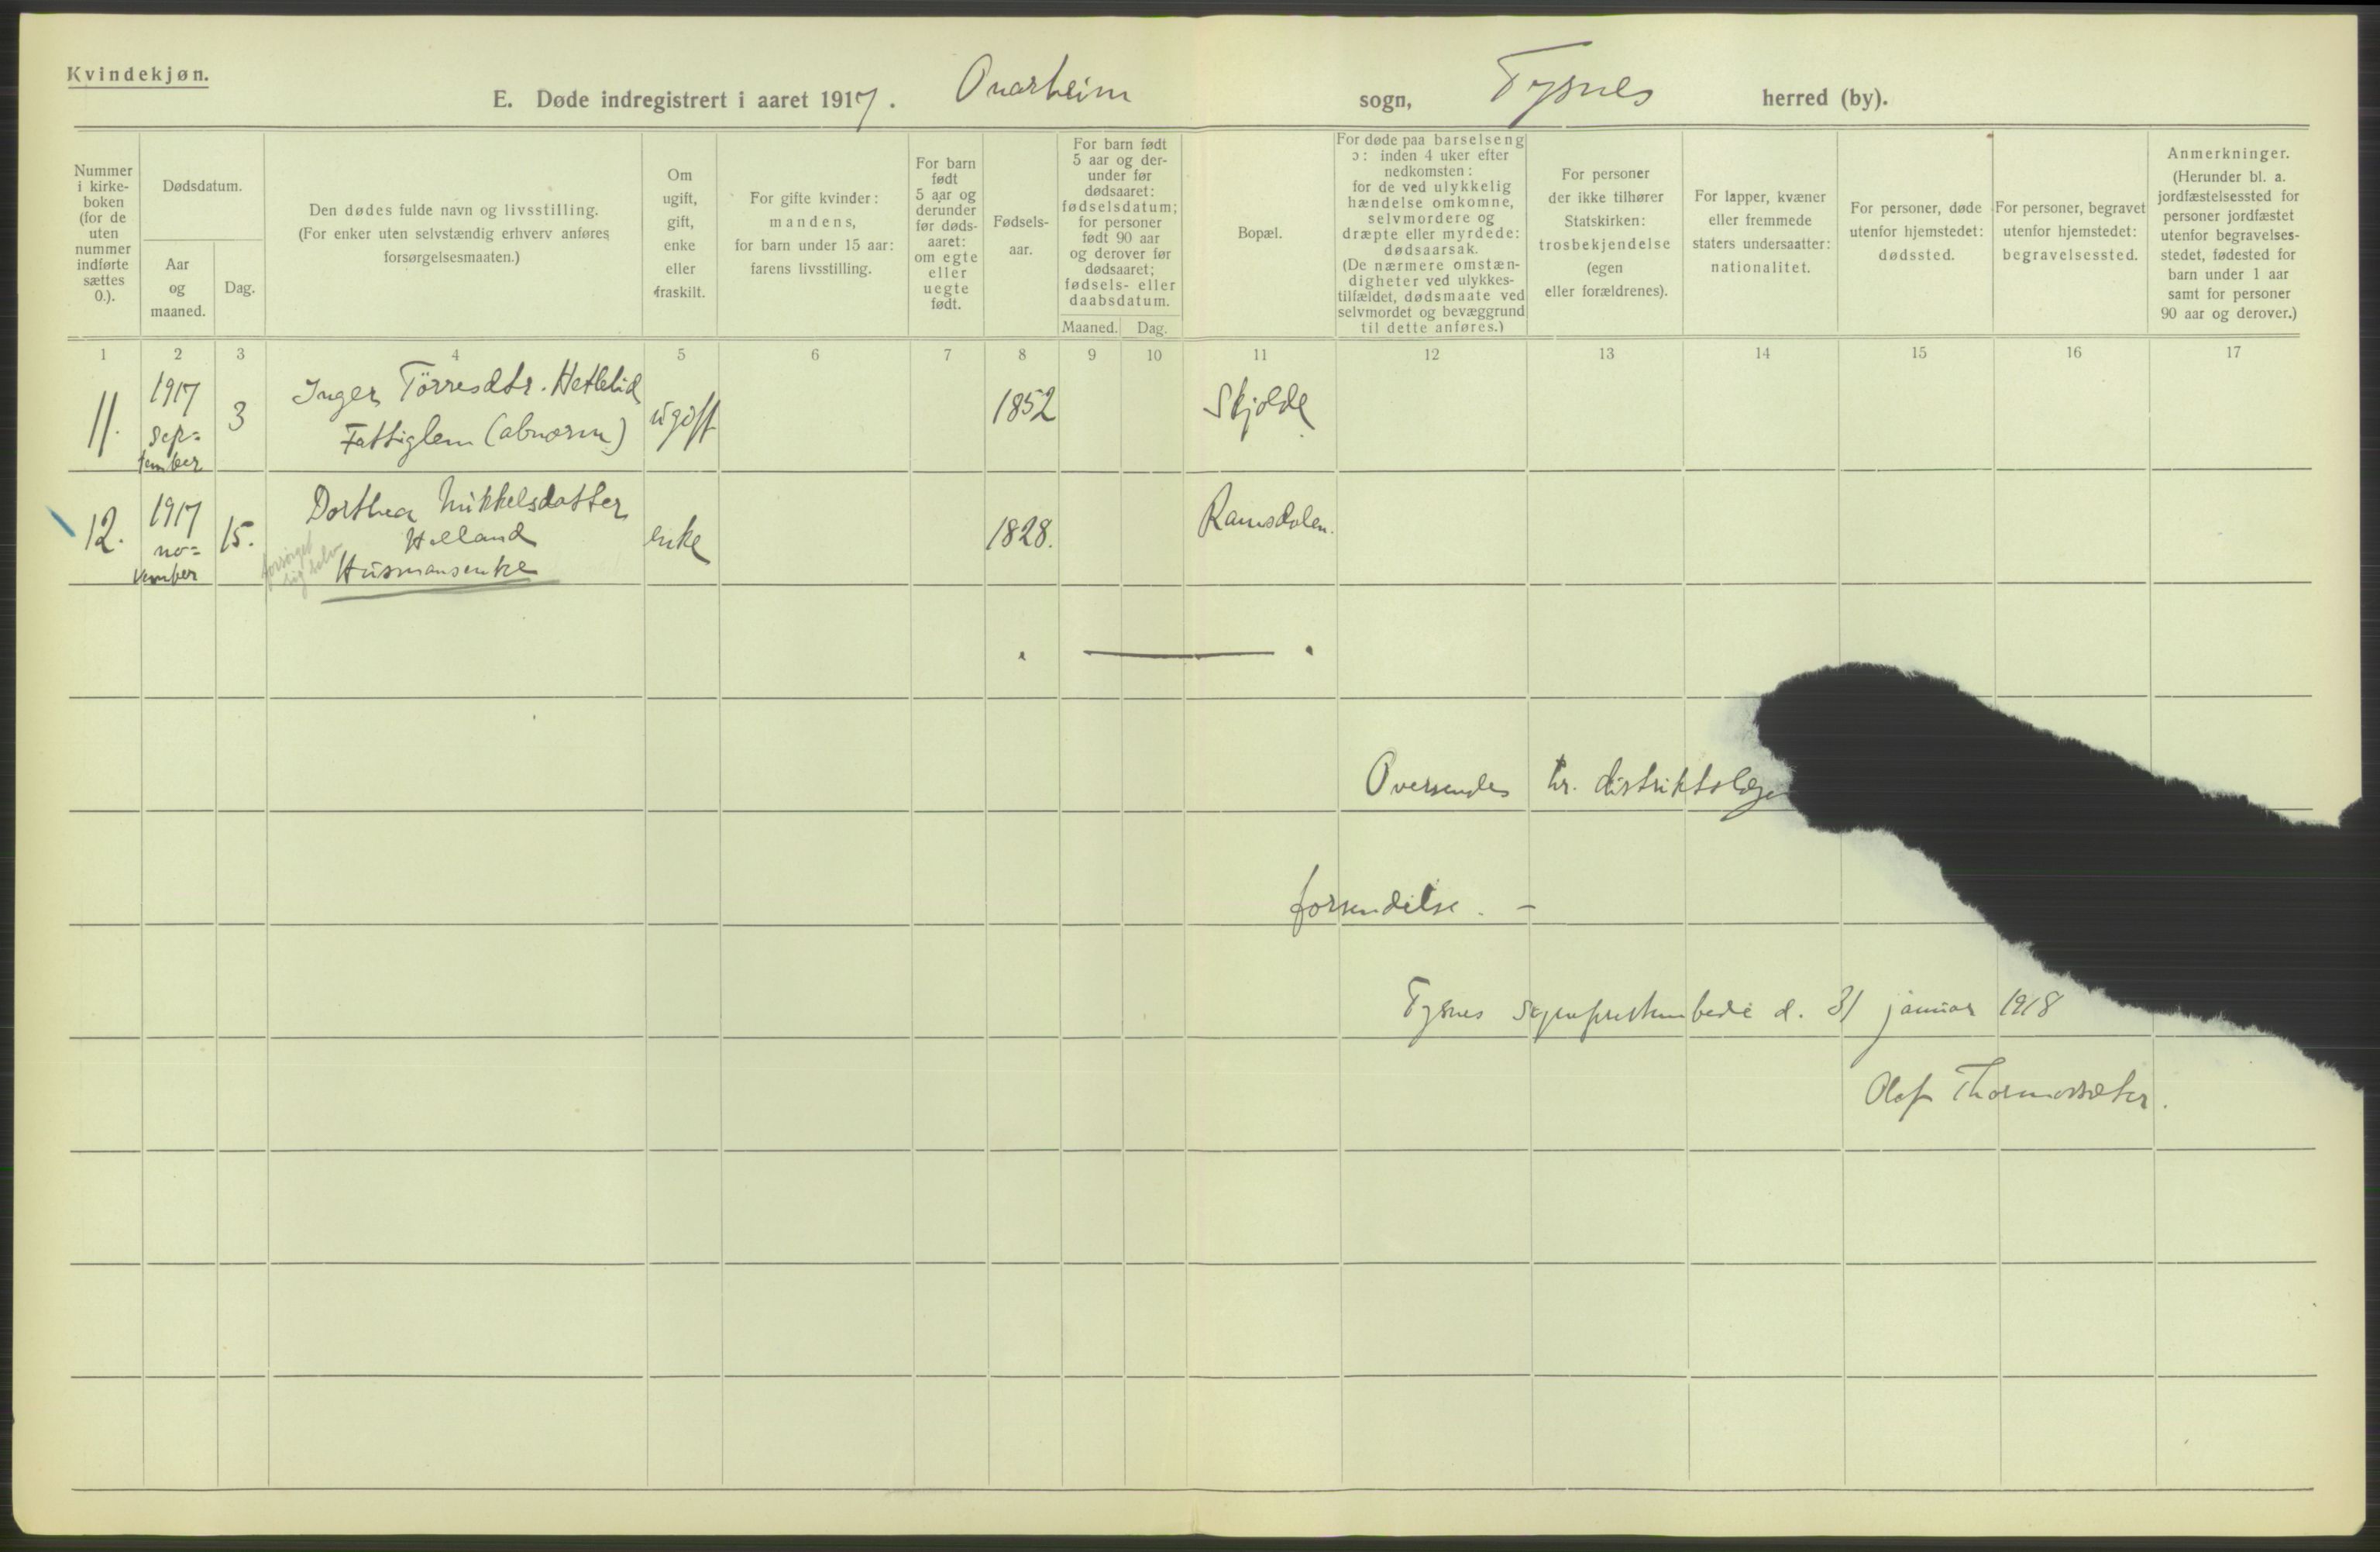 Kvindekjøn.
E. Døde indregistrert i aaret 1917. Onarheim sogn, Tysnes herred (by).
Nummer
i kirke-
boken
(for de
uten
nummer
indførte
sættes
0.).
Dødsdatum.
Aar
og
maaned.
Dag.
Den dødes fulde navn og livsstilling.
(For enker uten selvstændig erhverv anføres
forsørgelsesmaaten.)
Om
ugift,
gift,
enke
eller
fraskilt.
For gifte kvinder:
mandens,
for barn under 15 aar:
farens livsstilling.
For barn
født
5 aar og
derunder
før døds-
aaret:
om egte
eller
uegte
født.
Fødsels-
aar.
For barn født
5 aar og der-
under før
dødsaaret:
fødselsdatum;
for personer
født 90 aar
og derover før
dødsaaret;
fødsels- eller
daabsdatum.
Maaned. Dag.
Bopæl.
For døde paa barselseng
ɔ: inden 4 uker efter
nedkomsten:
for de ved ulykkelig
hændelse omkomne,
selvmordere og
dræpte eller myrdede:
dødsaarsak.
(De nærmere omstæn-
digheter ved ulykkes-
tilfældet, dødsmaate ved
selvmordet og bevæggrund
til dette anføres.)
For personer
der ikke tilhører
Statskirken:
trosbekjendelse
(egen
eller forældrenes).
For lapper, kvæner
eller fremmede
staters undersaatter:
nationalitet.
For personer, døde
utenfor hjemstedet:
dødssted.
For personer, begravet
utenfor hjemstedet:
begravelsessted.
Anmerkninger.
(Herunder bl. a.
jordfæstelsessted for
personer jordfæstet
utenfor begravelses-
stedet, fødested for
barn under 1 aar
samt for personer
90 aar og derover.)
1 2 3 4 5 6 7 8 9 10 11 12 13 14 15 16 17
11.
1917
sep=
tember
3
Inger Törresdtr. Hetlelid
Fattiglem (abnorm)
ugift
1852
Skjolde
12.
1917
no=
vember
15.
Dorthea Mikkelsdatter
Helland
Husmansenke
forsørget
sig selv
enke
1828.
Ramsdalen.
Oversendes hr. distriktslæge
forsendelse. –
Tysnes sogneprestembede d. 31 januar 1918
Olaf Thormodsæter.